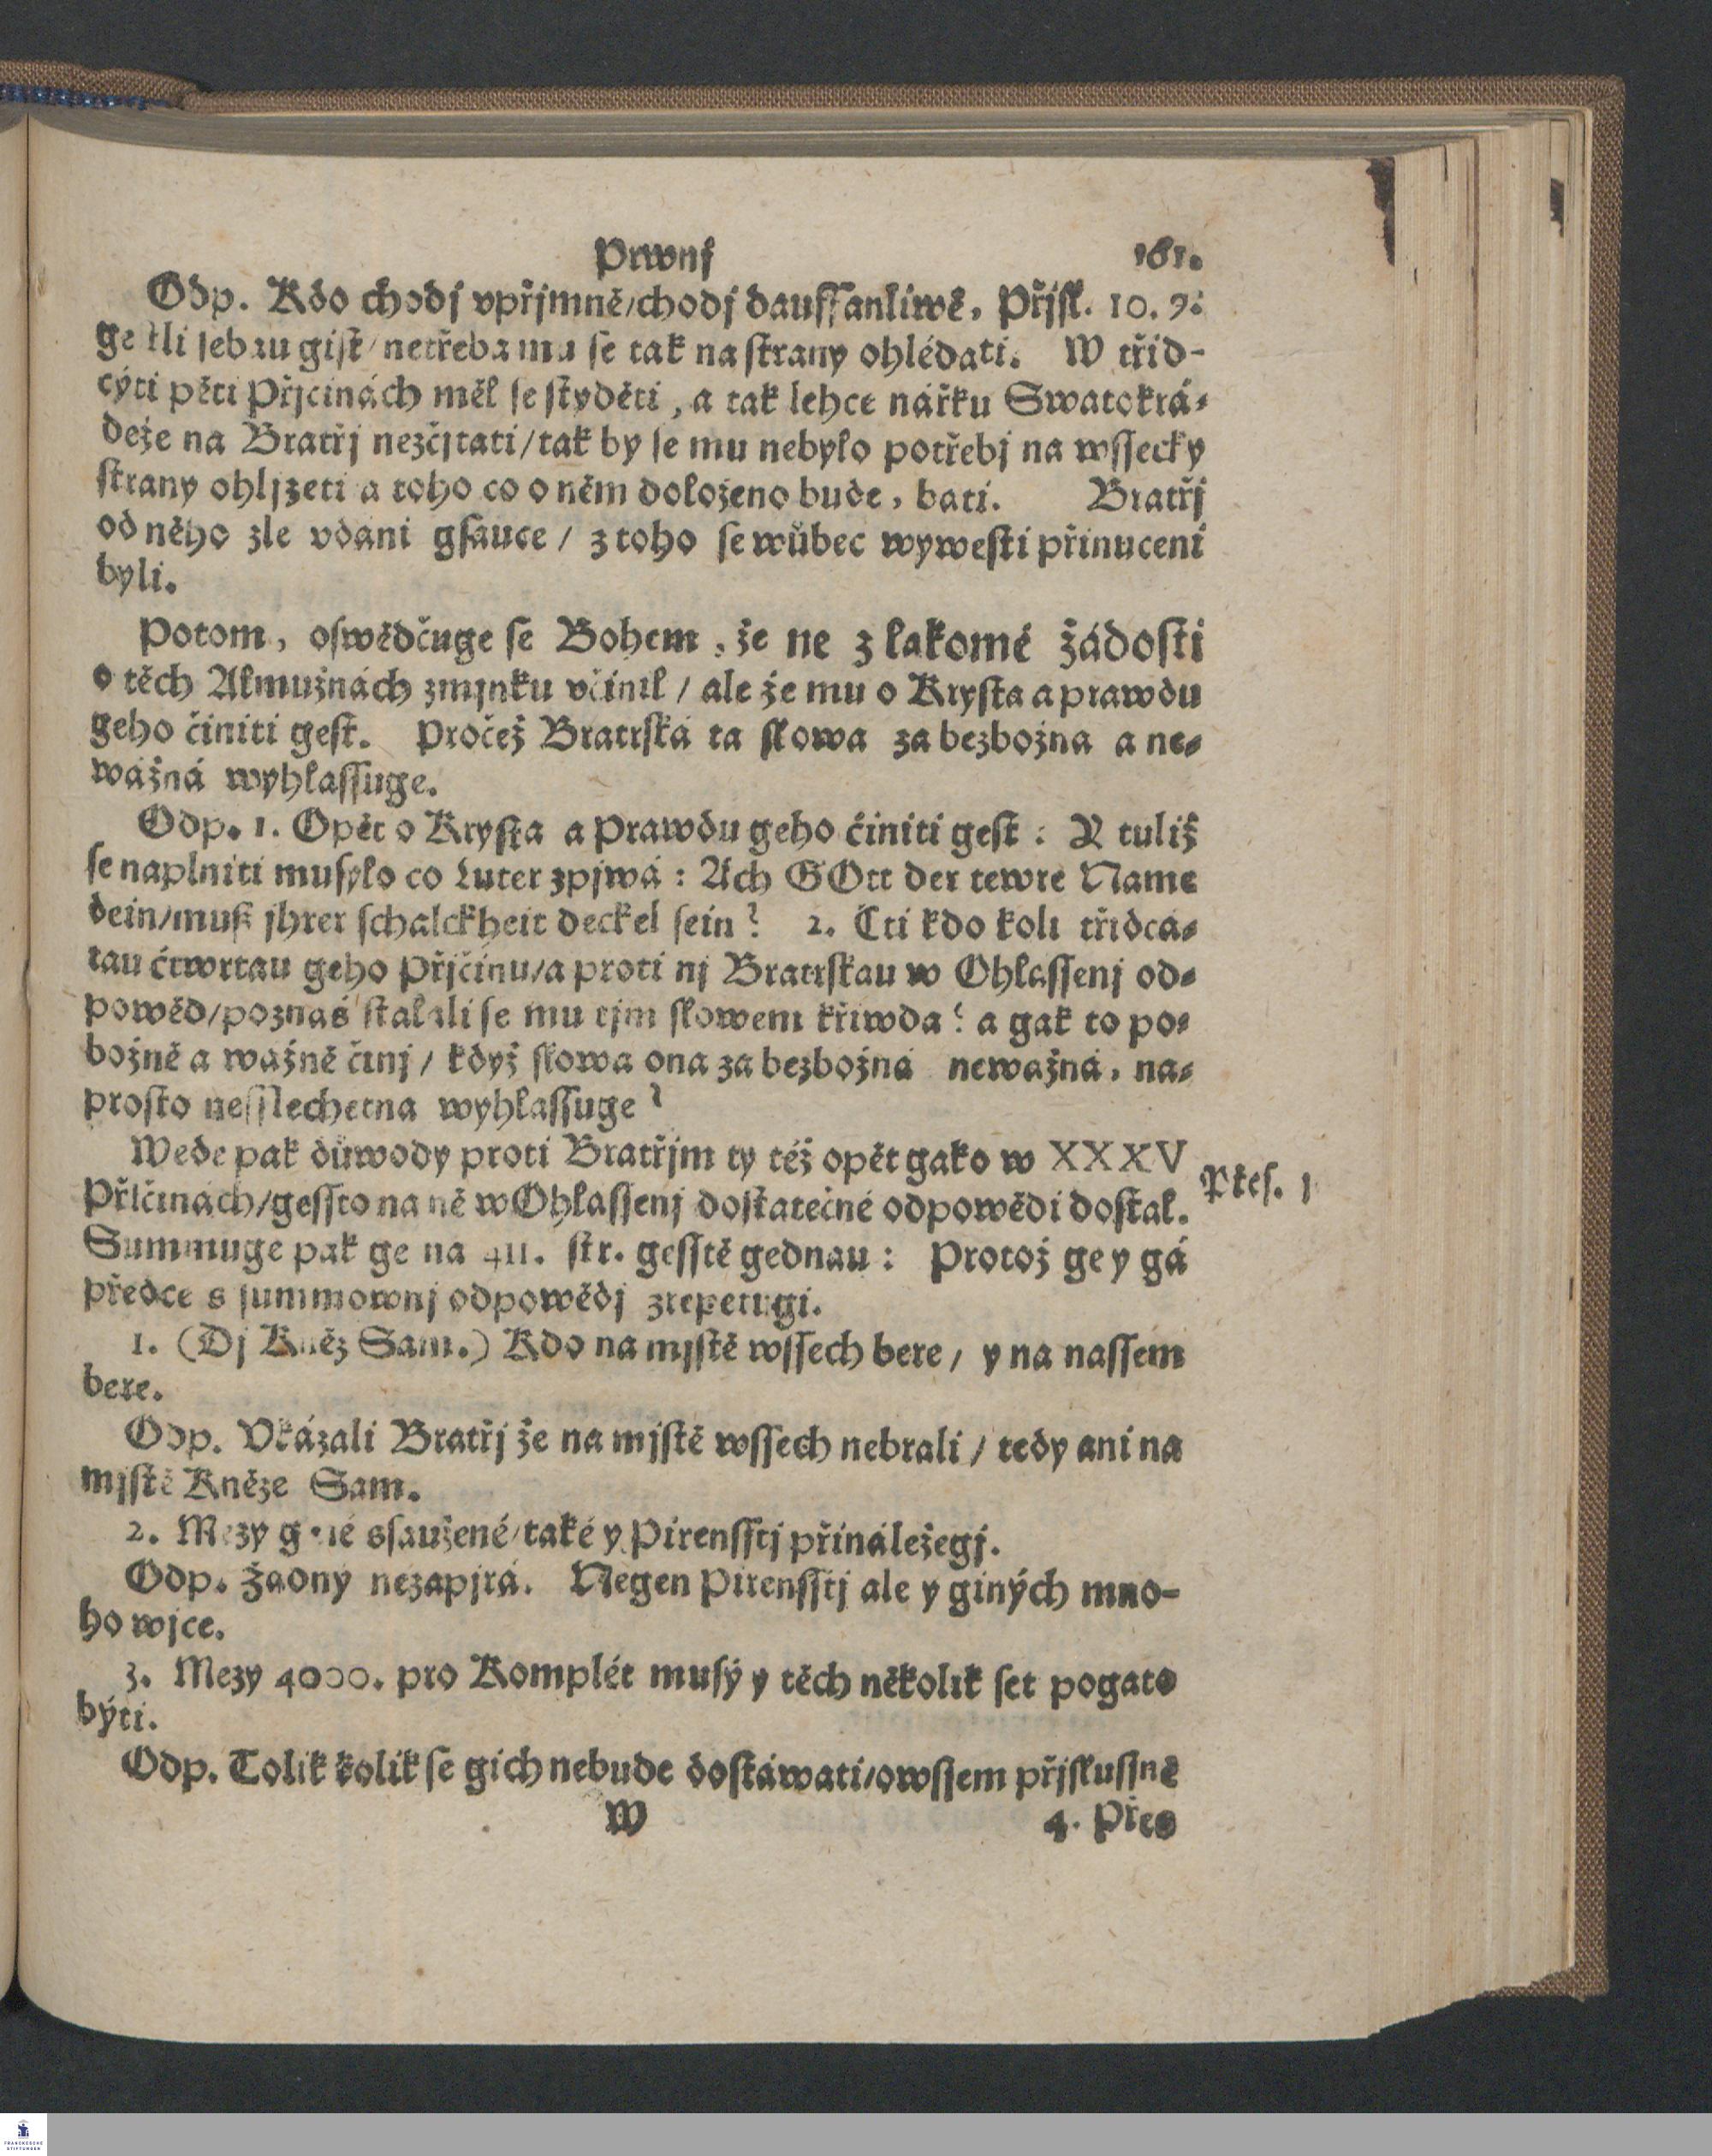 Prwnj 161.
Odp. Kdo chodj vpřjmně/chodj dauffanliwě, Přjsl. 10. 9:
gestli sebau gist/netřeba mu se tak na strany ohlédati. W třid-
cýti pěti Přjcinách měl se styděti, a tak lehce nářku Swatokrá-
deže na Bratřj nezčjtati/tak by se mu nebylo potřebj na wssecky
strany ohljzeti a toho co o něm doloženo bude, bati. Bratřj
od něho zle vdáni gsauce / z toho se wůbec wywesti přinuceni
byli.
Potom, oswědčuge se Bohem, že ne z lakomé žádosti
o těch Almužnách zmjnku včinil / ale že mu o Krysta a prawdu
geho činiti gest. Pročež Bratrská ta slowa za bezbožna a ne-
wážná wyhlassuge.
Odp. 1. Opět o Krysta a Prawdu geho činiti gest: Y tuliž
se naplniti musylo co Luter zpjwá: Ach GOtt der tewre Name
dein/muß jhrer schalckheit deckel sein? 2. Čti kdo koli třidcá-
tau čtwrtau geho Přjčinu/a proti nj Bratrskau w Ohlassenj od-
powěd/poznáš stalali se mu tjm slowem křiwda? a gak to po-
božně a wážně činj / když slowa ona za bezbožná newážná, na-
prosto nesslechetna wyhlassuge?
Wede pak důwody proti Bratřjm ty též opět gako w XXXV
Přičinách/gessto na ně w Ohlassenj dostatečné odpowědi dostal.
Přes. 1
Summuge pak ge na 411. str. gesstě gednau: Protož ge y gá
předce s summownj odpowědj zrepetugi.
1. (Dj Kněz Sam.) Kdo na mjstě wssech bere / y na nassem
bere.
Odp. Vkázali Bratřj že na mjstě wssech nebrali / tedy ani na
mjstě Kněze Sam.
2. Mezy giné ssaužené/také y Pirensstj přináležegj.
Odp. Žaoný nezapjrá. Negen Pirensstj ale y giných mno-
ho wjce.
3. Mezy 4000. pro Komplét musý y těch několik set pogato
býti.
Odp. Tolik kolik se gich nebude dostáwati/owssem přjslussně
W 4. Přes